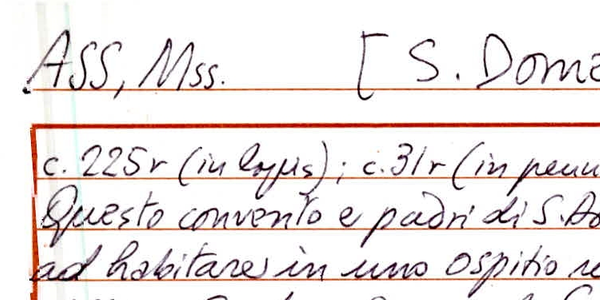 ASS, Mss. [ S. Dome
c. 225r (in lapis); c. 31r (in penn
Questo convento e padri di S. Do
ad habitare in uno ospitio